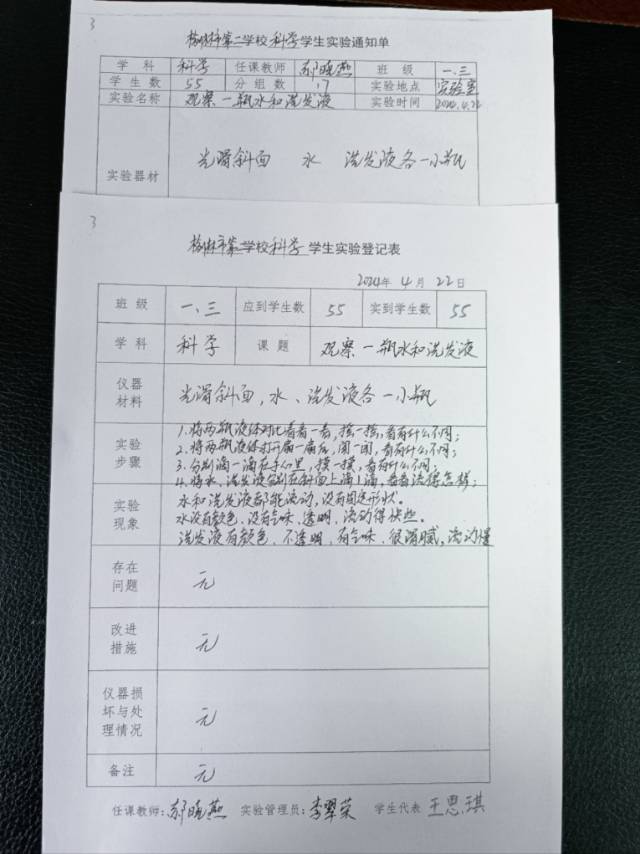 3
榆林市第二学校科学学生实验通知单
学科 科学 任课教师 郝晓燕 班级 一.三
学生数 55 分组数 17 实验地点 实验室
实验名称 观察一瓶水和洗发液 实验时间 2024.4.22
实验器材 光滑斜面 水 洗发液各一小瓶
3
榆林市第二学校科学学生实验登记表
2024年4月22日
班级 一.三 应到学生数 55 实到学生数 55
学科 科学 课题 观察一瓶水和洗发液
仪器
材料 光滑斜面,水、洗发液各一小瓶
实验
步骤
1.将两瓶液体对比着看一看,摇一摇,看有什么不同;
2.将两瓶液体打开扇一扇后,闻一闻,看有什么不同;
3.分别滴一滴在手心里,摸一摸,看有什么不同
4.将水、洗发液分别在斜面上滴1滴,看看流得怎样;
实验
现象
水和洗发液都能流动,没有固定形状。
水没有颜色、没有气味、透明、流动得快些。
洗发液有颜色、不透明、有气味、很滑腻,流动慢
存在
问题 无
改进
措施 无
仪器损
坏与处
理情况 无
备注 无
任课教师:郝晓燕 实验管理员:李翠荣 学生代表 王思琪